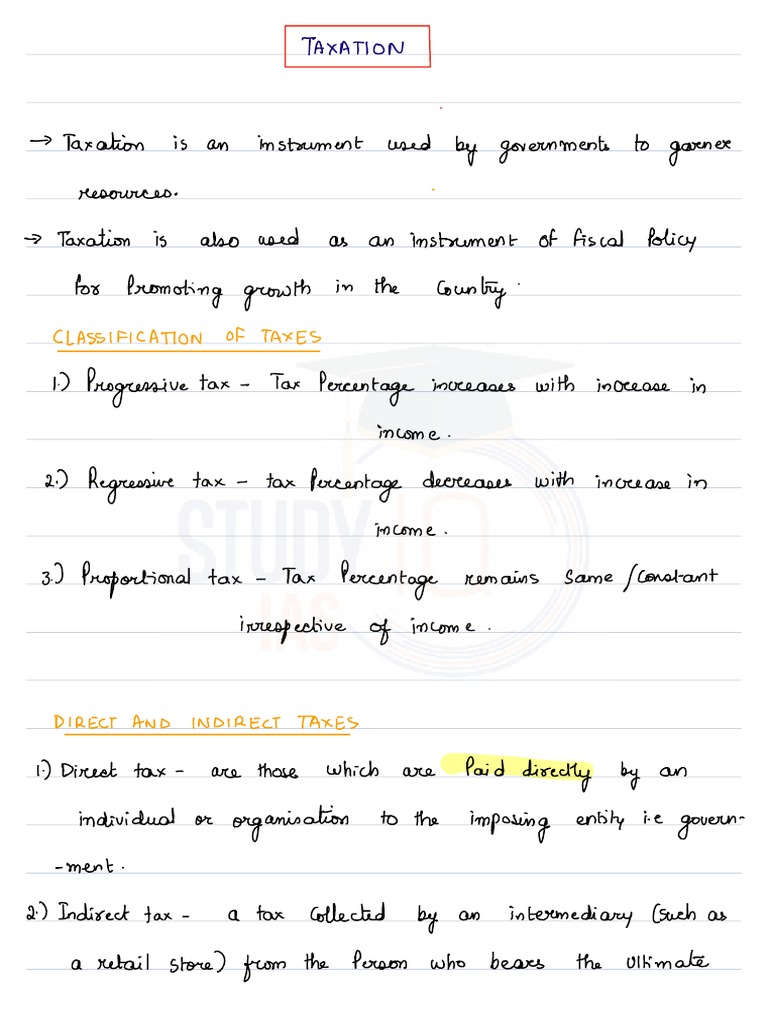 TAXATION
→ Taxation is an instrument used by governments to garner
resources.
→ Taxation is also used as an instrument of fiscal Policy
for Promoting growth in the Country.
CLASSIFICATION OF TAXES
1.) Progressive tax - Tax Percentage increases with increase in
income.
2.) Regressive tax - tax Percentage decreases with increase in
income.
3.) Proportional tax - Tax Percentage remains same/constant
irrespective of income.
STUDY IQ
IAS
DIRECT AND INDIRECT TAXES
1.) Direct tax - are those which are Paid directly by an
individual or organisation to the imposing entity i.e govern-
-ment.
2.) Indirect tax - a tax collected by an intermediary (such as
a retail store) from the Person who bears the ultimate